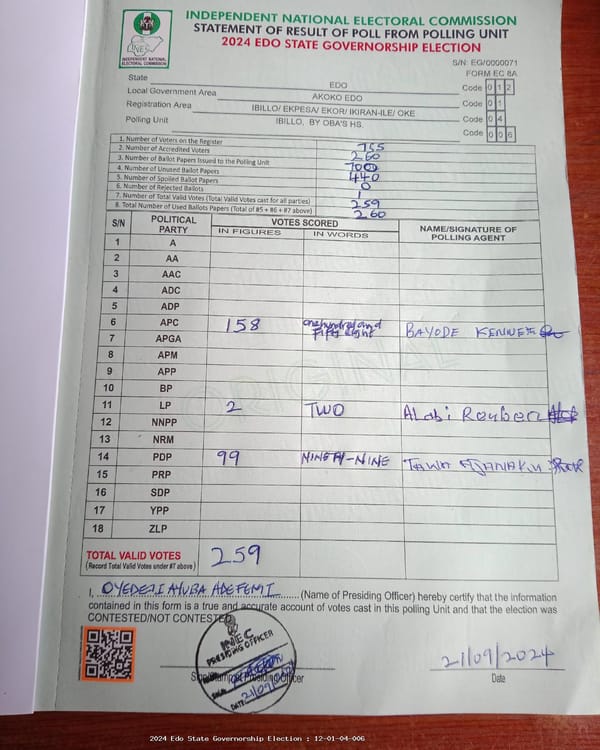 INDEPENDENT NATIONAL ELECTORAL COMMISSION
STATEMENT OF RESULT OF POLL FROM POLLING UNIT
2024 EDO STATE GOVERNORSHIP ELECTION
INEC
INDEPENDENT NATIONAL
ELECTORAL COMMISSION
S/N: EG/0000071
FORM EC 8A
State EDO Code 0 1 2
Local Government Area AKOKO EDO Code 0 1
Registration Area IBILLO/ EKPESA/ EKOR/ IKIRAN-ILE/ OKE Code 0 4
Polling Unit IBILLO, BY OBA'S HS. Code 0 0 6
1. Number of Voters on the Register 755
2. Number of Accredited Voters 260
3. Number of Ballot Papers Issued to the Polling Unit 700
4. Number of Unused Ballot Papers 440
5. Number of Spoiled Ballot Papers 0
6. Number of Rejected Ballots 1
7. Number of Total Valid Votes (Total Valid Votes cast for all parties) 259
8. Total Number of Used Ballots Papers (Total of #5 + #6 + #7 above) 260
S/N POLITICAL PARTY VOTES SCORED NAME/SIGNATURE OF POLLING AGENT
IN FIGURES IN WORDS
1 A
2 AA
3 AAC
4 ADC
5 ADP
6 APC 158 one hundred and Fifty eight BAYODE KENNETH
7 APGA
8 APM
9 APP
10 BP
11 LP 2 TWO Alabi Reuben
12 NNPP
13 NRM
14 PDP 99 NINETY-NINE
15 PRP
16 SDP
17 YPP
18 ZLP
ORIGINAL
TOTAL VALID VOTES 259
(Record Total Valid Votes under #7 above)
I, OYEDEJI AYUBA ADEFEMI (Name of Presiding Officer) hereby certify that the information
contained in this form is a true and accurate account of votes cast in this polling Unit and that the election was
CONTESTED/NOT CONTESTED
INEC
PRESIDING OFFICER
SIGN
DATE 21/09/2024
21/09/2024
Date
2024 Edo State Governorship Election : 12-01-04-006